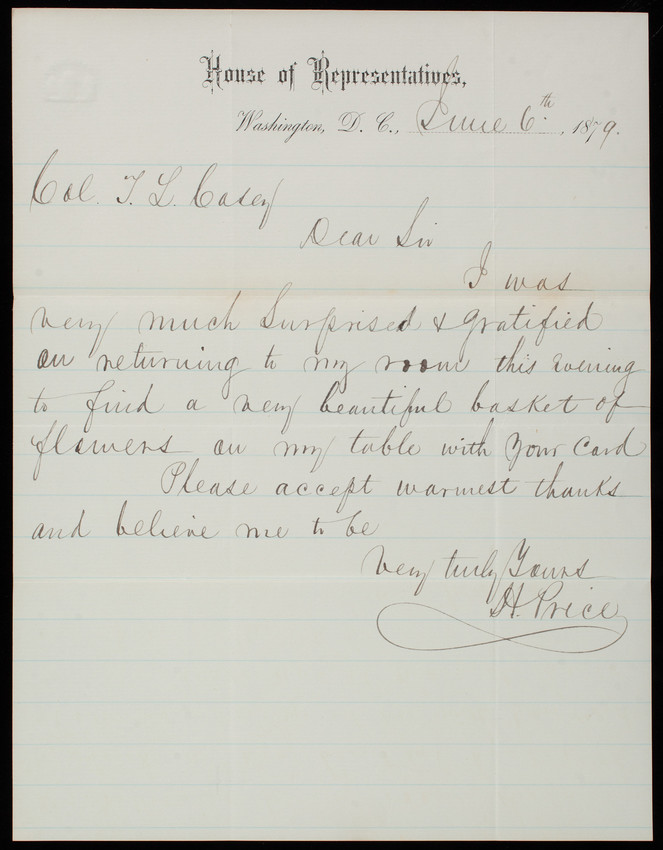 House of Representatives,
Washington, D. C., June 6th, 1879.
Col. T. L. Casey
Dear Sir
I was
very much Surprised & gratified
on returning to my room this Evening
to find a very beautiful basket of
flowers on my table with your Card
Please accept warmest thanks
and believe me to be
Very truly Yours
H. Price